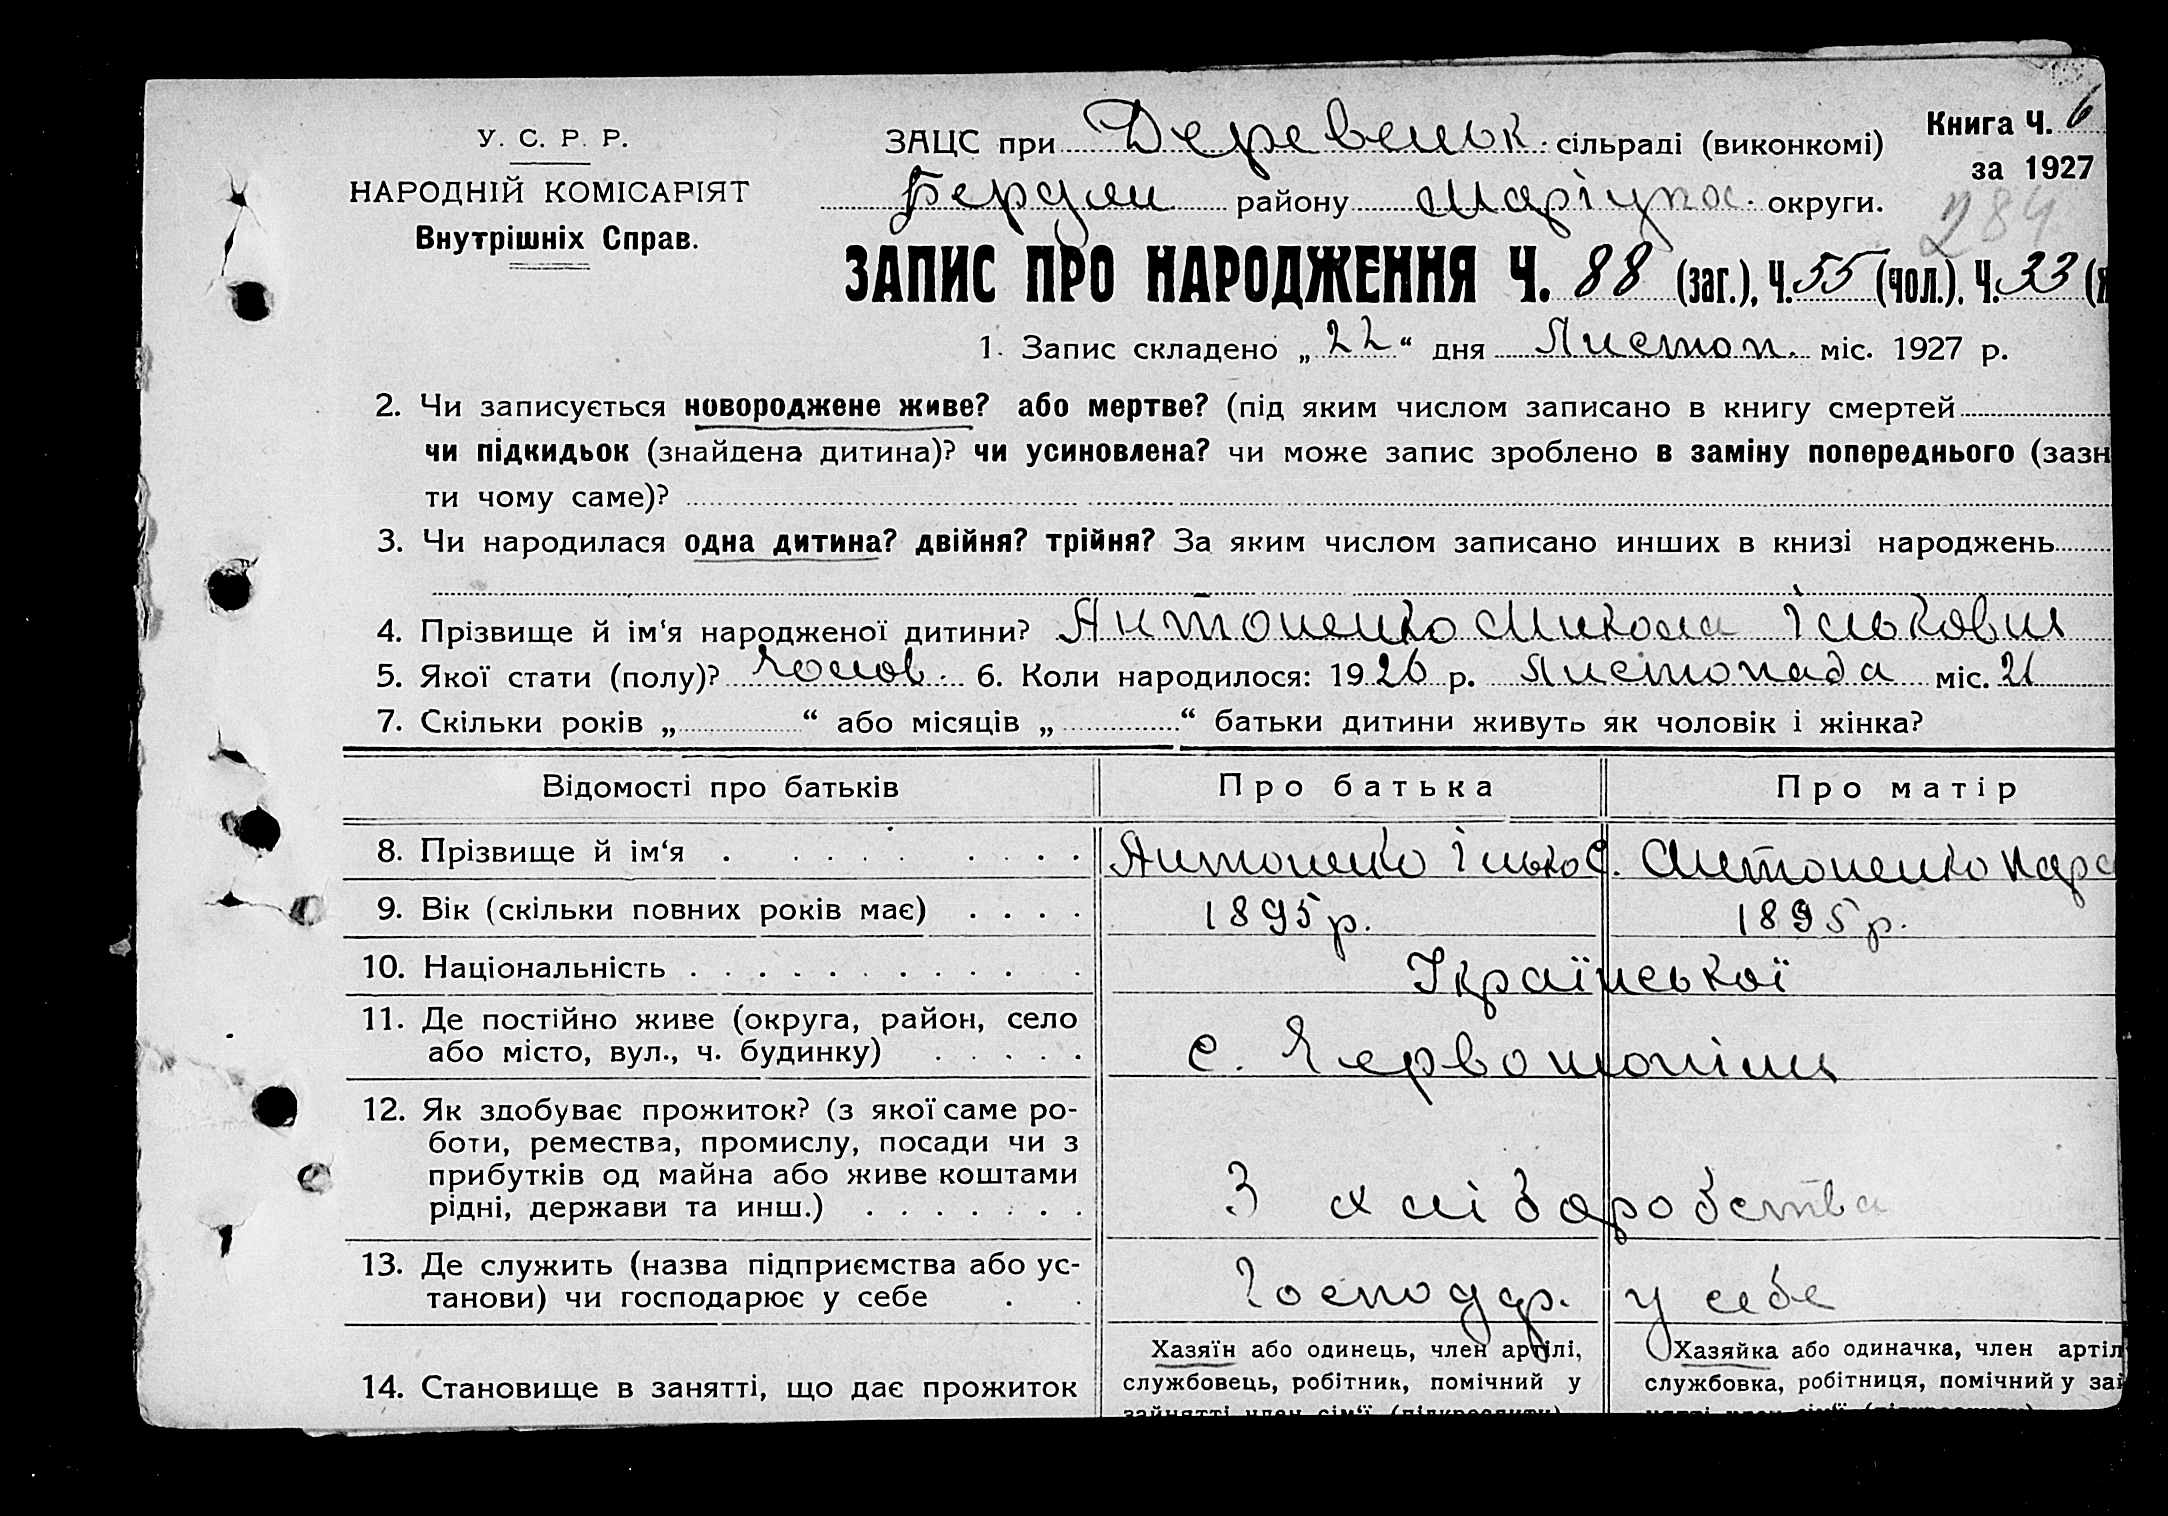 У. С. Р. Р.
НАРОДНІЙ КОМІСАРІЯТ
Внутрішніх Справ.
ЗАЦС при Деревецьк. сільраді (виконкомі)
Книга Ч. 6
за 1927
Бердян району Маріупо. округи.
284
ЗАПИС ПРО НАРОДЖЕННЯ Ч. 88 (заг.), Ч. 55 (чол.). Ч. 33
1. Запис складено „22“ дня Листоп. міс. 1927 р.
2. Чи записується новороджене живе? або мертве? (під яким числом записано в книгу смертей
чи підкидьок (знайдена дитина)? чи усиновлена? чи може запис зроблено в заміну попереднього (зазн
ти чому саме)?
3. Чи народилася одна дитина? двійня? трійня? За яким числом записано инших в книзі народжень
4. Прізвище й ім‘я народженої дитини? Антоненко Микола Ількович
5. Якої стати (полу)? Чолов. 6. Коли народилося: 1926 р. Листопада міс. 21
7. Скільки років „ “ або місяців „ “ батьки дитини живуть як чоловік і жінка?
Відомості про батьків Про батька Про матір
8. Прізвище й ім‘я . . . . . . . . . Антоненко Ілько С. Антоненко Пара
9. Вік (скільки повних років має) . . . . 1895р. 1895р.
10. Національність . . . . . . . . . . Української
11. Де постійно живе (округа, район, село
або місто, вул., ч. будинку) . . . . . с. Червонопіль
12. Як здобуває прожиток? (з якої саме ро-
боти, ремества, промислу, посади чи з
прибутків од майна або живе коштами
рідні, держави та инш.) . . . . . . . З хліборобства
13. Де служить (назва підприємства або ус-
танови) чи господарює у себе . . Господар. у себе
14. Становище в занятті, що дає прожиток
Хазяїн або одинець, член артілі,
службовець, робітник, помічний у
зайнятті член сім‘ї (підкреслити)
Хазяйка або одиначка, член артіл
службовка, робітниця, помічний у зай
нятті член сім‘ї (підкреслити)